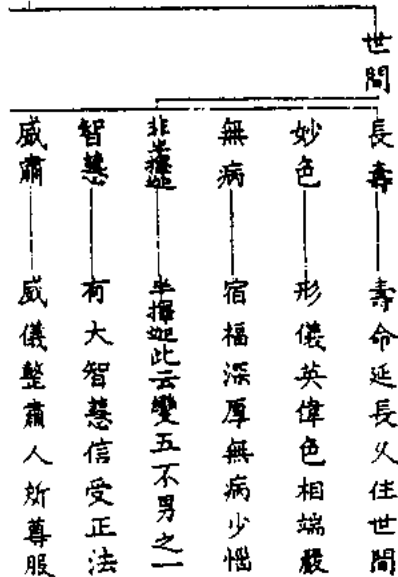 世間
長壽
壽命延長久住世間
妙色
形儀英偉色相端嚴
無病
宿福深厚無病少惱
非半擇迦
半擇迦此云變五不男之一
智慧
有大智慧信受正法
威肅
威儀整肅人所尊服